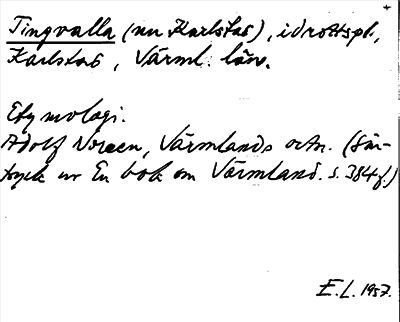 Tingvalla (nu Karlstad), idrottspl.,
Karlstad, Värml. län.
Etymologi.
Adolf Noreen, Värmlands ortn. (Sär-
tryck ur En bok om Värmland. s. 384 f.)
E.L. 1957.